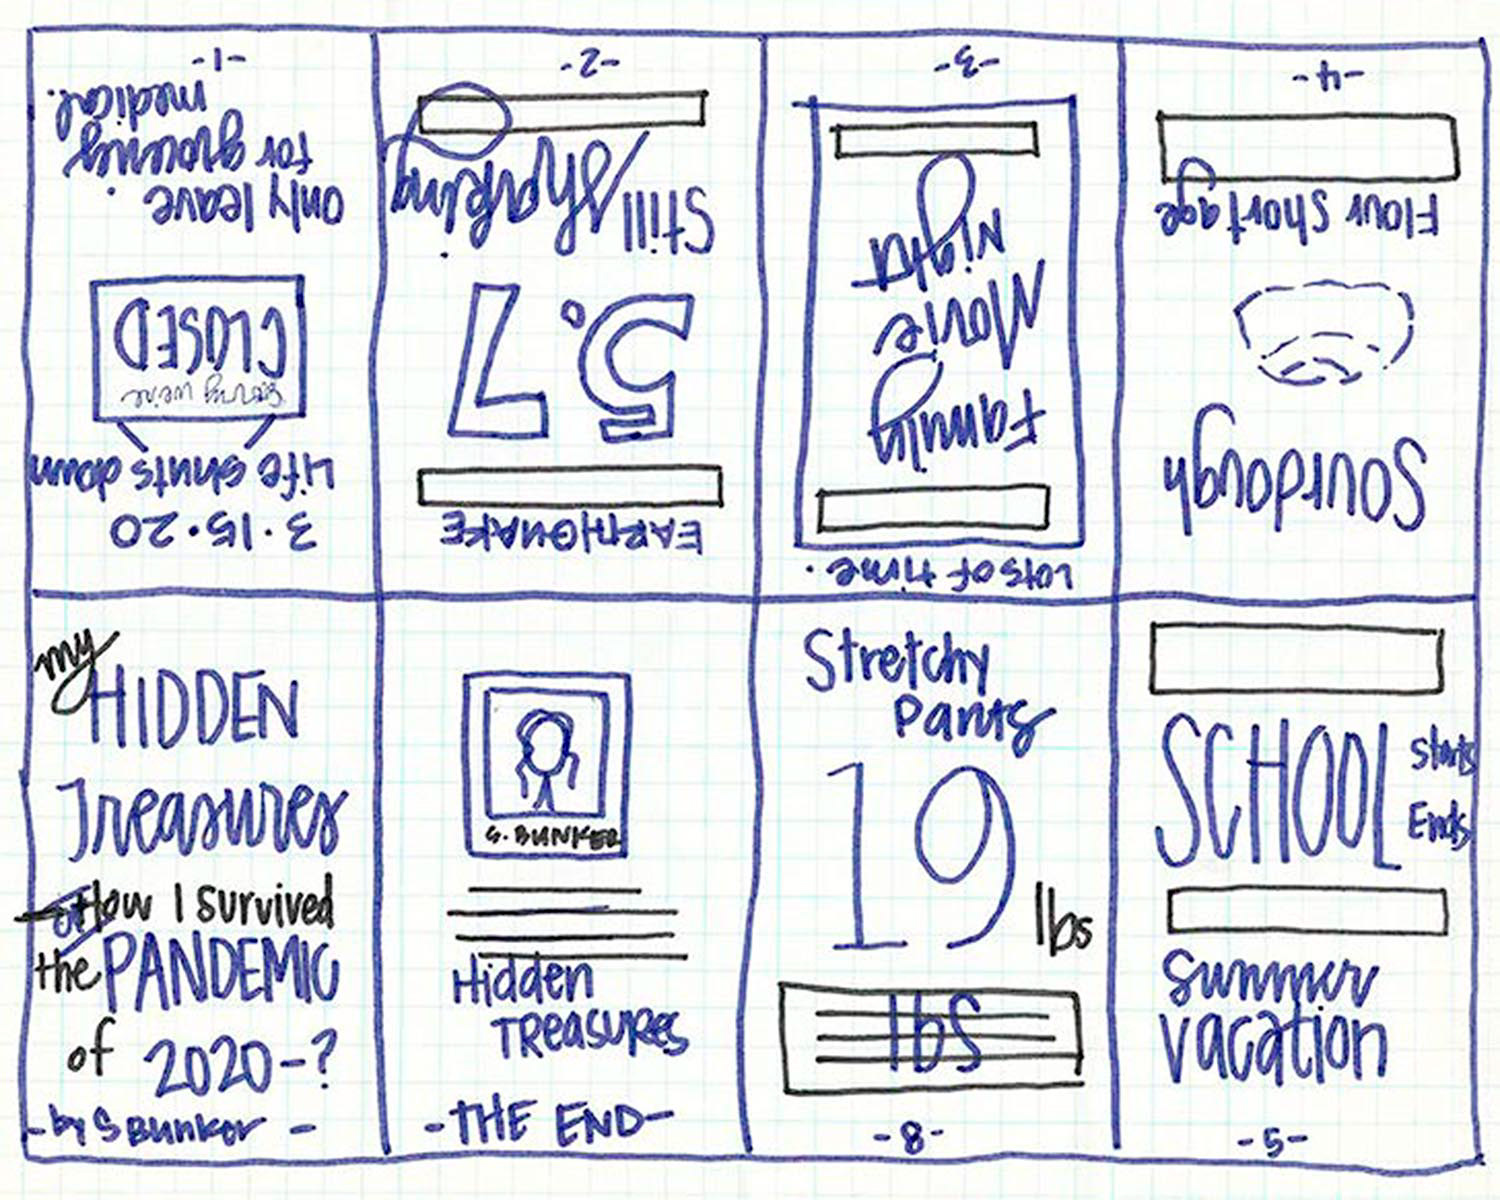 -1-
medical.
for grocery.
only leave
CLOSED
sorry we're
Life shuts down
3.15.20
-2-
Still Shaking
5.7
EARTHQUAKE
-3-
Family
Movie
Night
Lots of time.
-4-
Flour Shortage
Sourdough
my
HIDDEN
Treasures
How I survived
the PANDEMIC
of 2020-?
-by S Bunker-
S. BUNKER
Hidden
TREASURES
-THE END-
Stretchy
Pants
19
lbs
lbs
-8-
SCHOOL
starts
Ends
summer
vacation
-5-